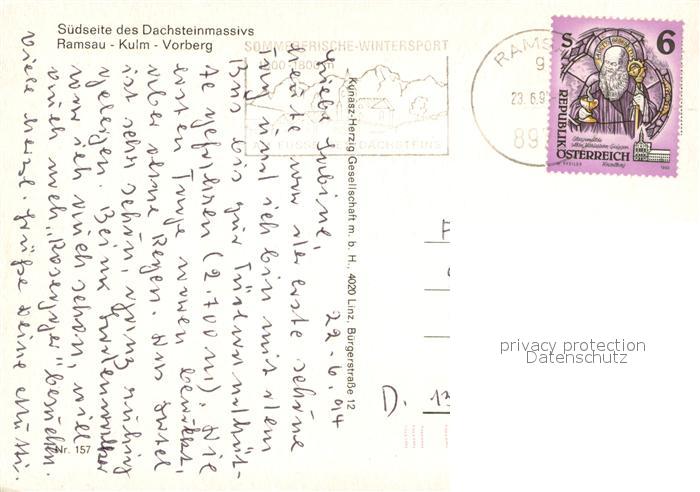 Südseite des Dachsteinmassivs
Ramsau - Kulm - Vorberg
SOMMERFRISCHE-WINTERSPORT
1200-1800m
AM FUSSE DES DACHSTEINS
RAMS
23.6.9
S 6
REPUBLIK
ÖSTERREICH
Kynasz-Herzig Gesellschaft m. b. H., 4020 Linz, Bürgerstraße 12
22.6.94
Liebe Sabine,
heute war der erste schöne
Tag und ich bin mit dem
Bus bis zur Türlwandhüt-
te gefahren (1.700 m). Die
ersten Tage waren bewölkt,
aber ohne Regen. Das Hotel
ist sehr schön, ganz ruhig
gelegen. Beim
war ich auch schon, will
auch noch "Rosegger" besuchen.
Viele herzl. Grüße Deine Mutti.
Nr. 157
D.
privacy protection
Datenschutz